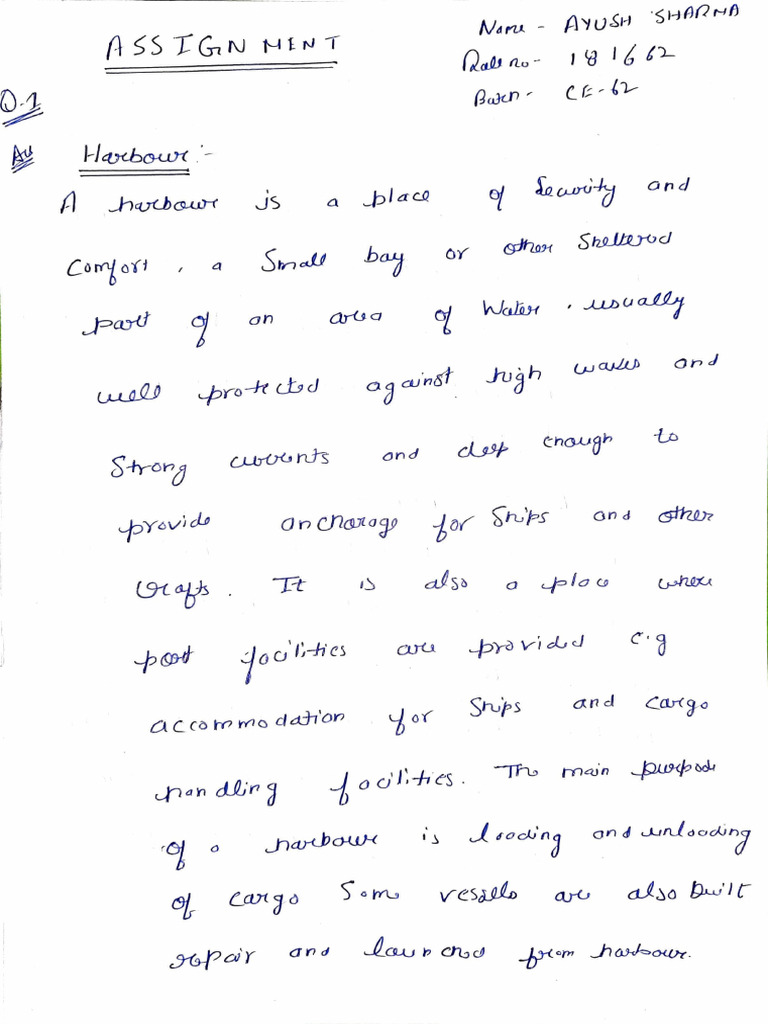 ASSIGNMENT
Name - AYUSH SHARMA
Roll no - 181662
Batch - CE-62
Q.1
Ans Harbour:-
A harbour is a place of security and
comfort, a small bay or other sheltered
part of an area of water, usually
well protected against high waves and
strong currents and deep enough to
provide anchorage for ships and other
crafts. It is also a place where
port facilities are provided e.g
accommodation for ships and cargo
handling facilities. The main purpose
of a harbour is loading and unloading
of cargo Some vessels are also built
repair and launched from harbour.